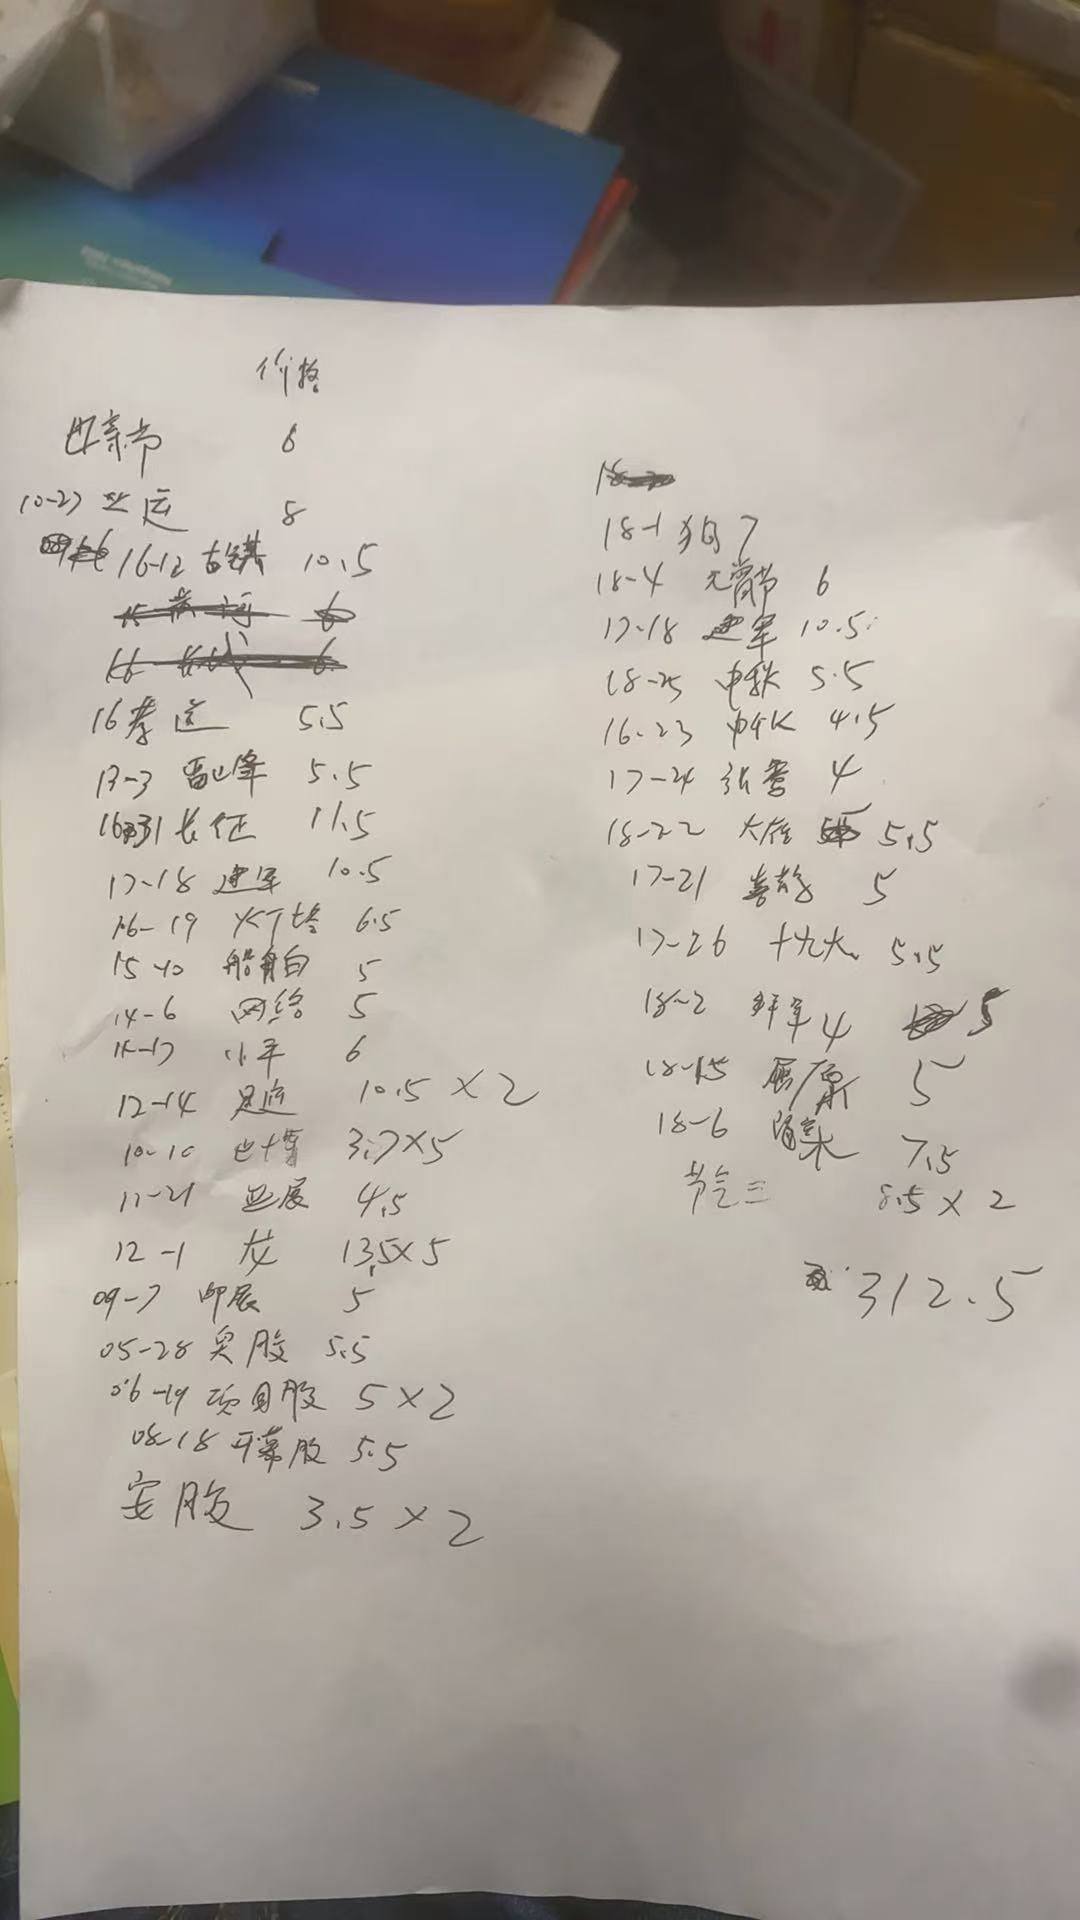 价格
母亲节 6
10-27 亚运 8
16-12 古镇 10.5
16 孝道 5.5
13-3 雷锋 5.5
1631 长征 11.5
17-18 建军 10.5
16-19 灯塔 6.5
15-10 船舶 5
14-6 网络 5
14-17 小平 6
12-14 足迹 10.5 ×2
10-10 世博 3.7×5
11-21 亚展 4.5
12-1 龙 13.5×5
09-7 邮展 5
05-28 奥股 5.5
06-19 项目股 5×2
08-18 开幕股 5.5
安股 3.5×2
18-1 狗 7
18-4 元宵节 6
17-18 建军 10.5
18-25 中秋 5.5
16-23 4.5
17-24 张骞 4
18-22 大雁 5.5
17-21 喜鹊 5
17-26 十九大 5.5
18-2 拜年4 5
18-15 屈原 5
18-6 7.5
节气三 8.5×2
312.5